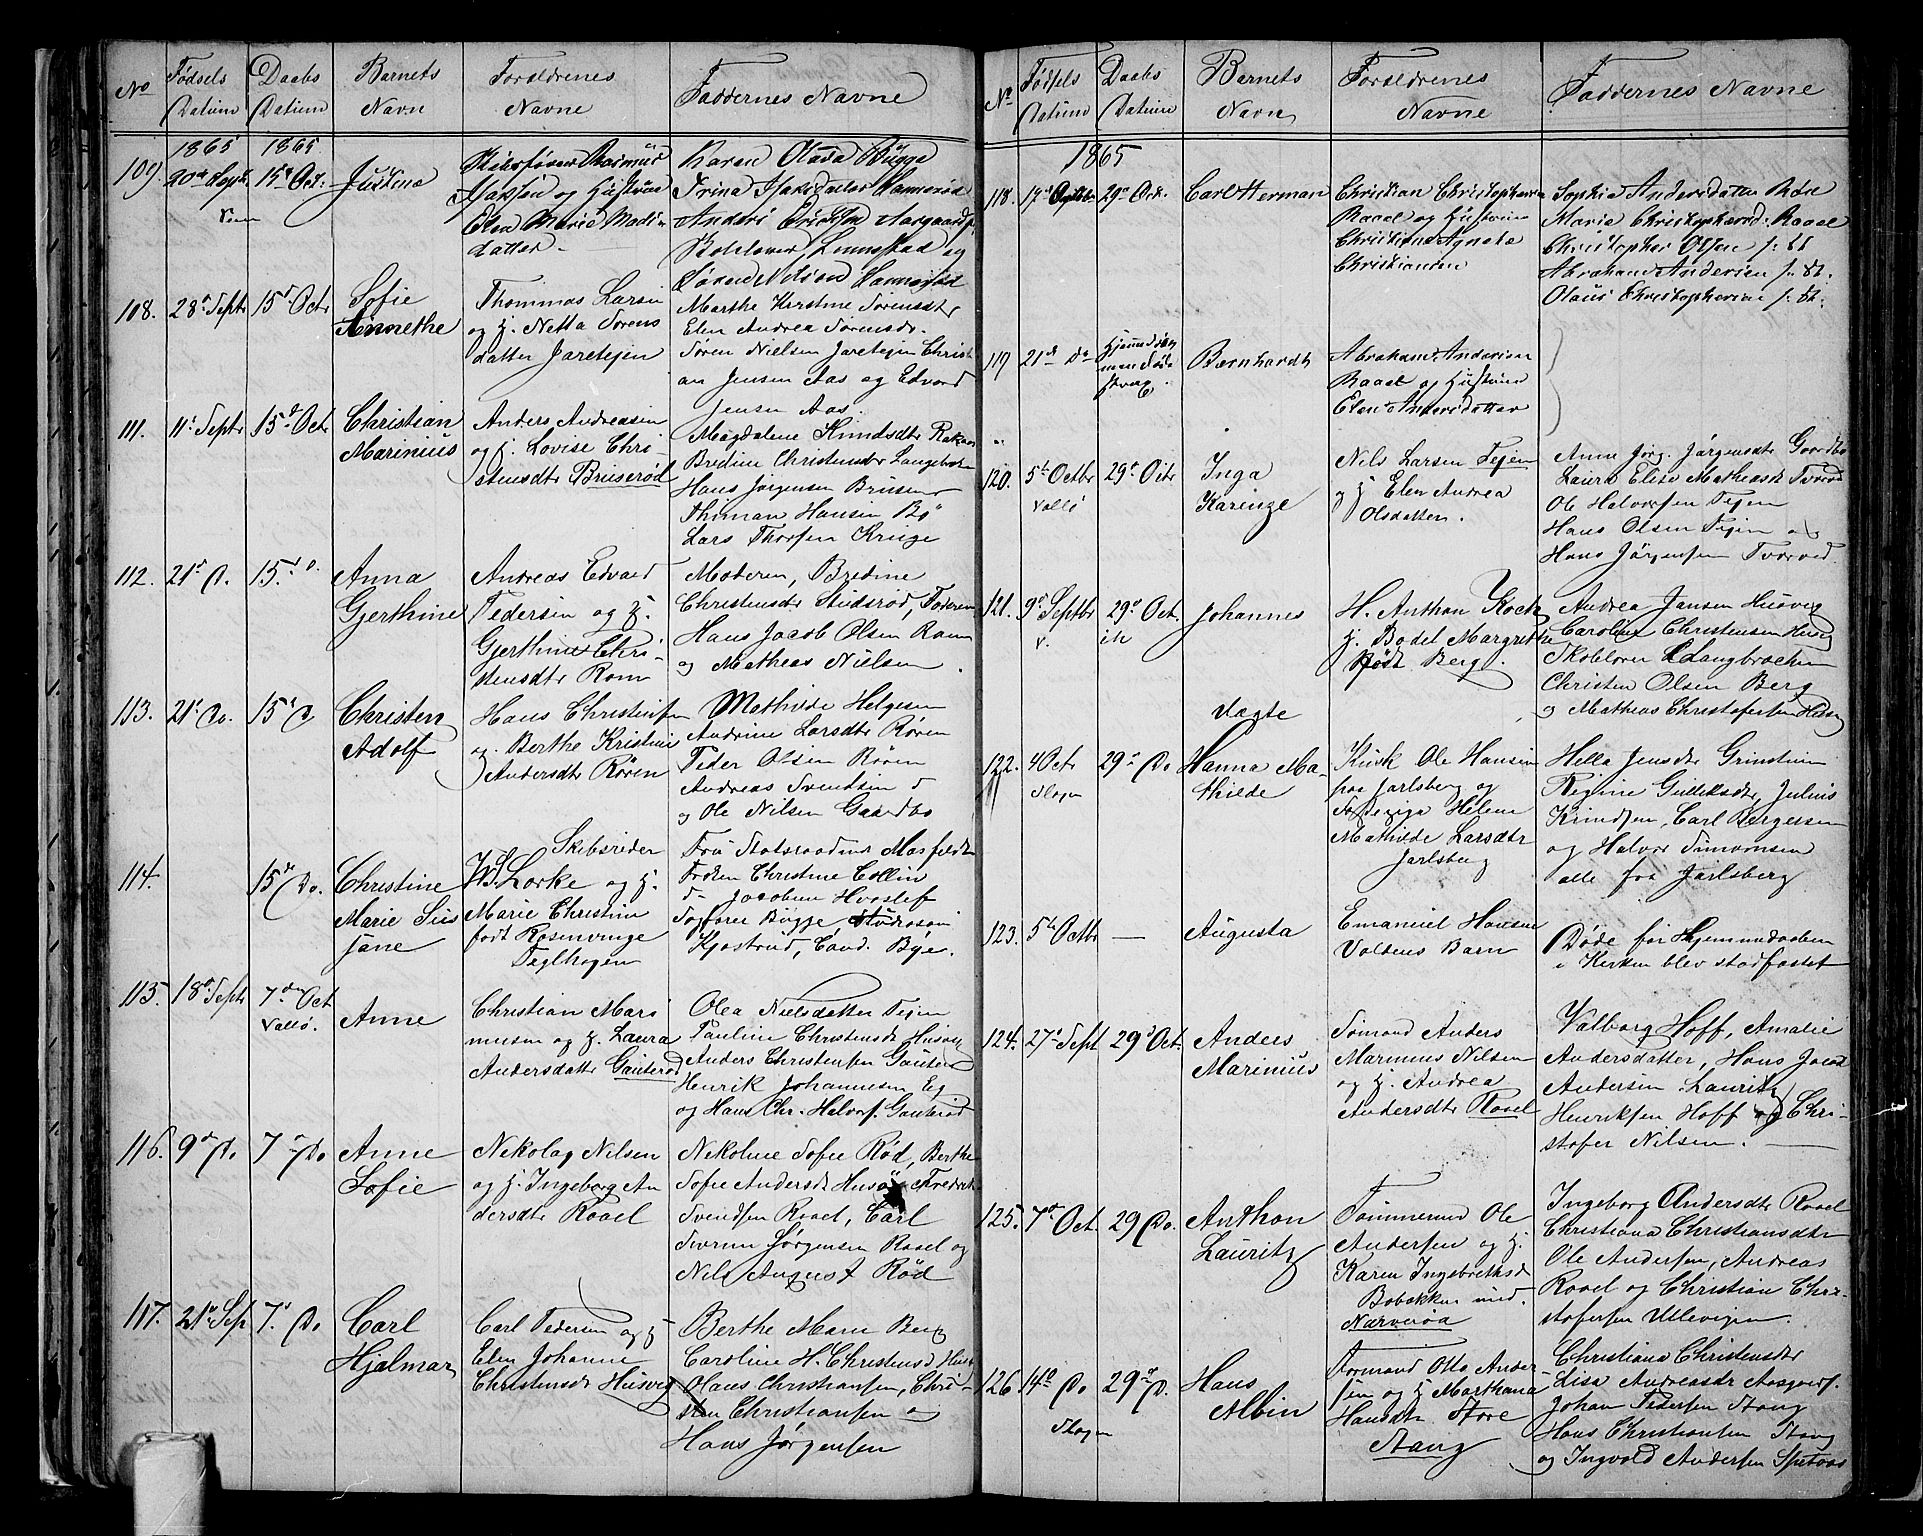 No Fødsels Datum Daabs Datum Barnets Navn Forældrenes Navne Faddernes Navne
1865 1865
109. 20de Sept. 15de Oct. Justine
Skibsfører Rasmus
Isaksen og Hustrue
Elen Marie Mads-
datter.
Karen Olava Bügge
Trina Isaksdatter
Anders Erichsen Aargaard
Sören Nielsen
108. 28de Septr 15de Octr Sofie
Annethe
Thommas Larsen
og H. Netta Sorens
datter Jaretejen
Marthe Kirstine Sorensdtr
Elen Andrea Sorensdr.
Søren Nielsen Jaretejen Christi
an Jensen Aas og Edvard
Jensen Aas.
111. 11te Septr 15de Octr Christian
Marinius
Anders Andreasen
og H. Lovise Chri-
stensdtr Bruserød
Magdalene Knudsdtr
Bredine Christensdtr
Hans Jørgensen
Thiman Hansen Bø
Lars Thorsen Kruge
112. 21de D. 15de D. Anna
Gjerthine
Andreas Edvard
Pedersen og H.
Gjerthine Chri-
stensdtr Rom
Moderen, Bredine
Christensdtr Studsrød, Faderen
Hans Jacob Olsen Rom
og Mathias Nielsen.
113. 21de Do. 15de D Christen
Adolf
Hans Christensen
og Berthe Kristine
Andersdtr Røren
Mathilde Helgesen
Andrine Larsdtr Røren
Peder Olsen Røren
Andreas Svendsen d
og Ole Nilsen Gaardbo
114. 15de Do. Christine
Marie Sus
jane
Skibsreder
W. S. Lorke og H.
Marie Christine
født Rosenvinge
Teglhagen
Fru Statsraadinde
Frøken Christine Collin
d- Jacobine Hvoslef
Fogfører Bügge,
Kjostrud, Cand. Bye.
115. 18de Septr 7de Oct
Vallø. Anne
Christian Mari
nusen og H. Laura
Andersdatter Gauterød
Olea Nielsdatter Tejen
Pauline Christensdr Husvig
Anders Christensen Gauterød
Henrik Johannesen Eig
og Hans Chr. Halvors. Gauterød
116. 9de D. 7de Do Anne
Sofie
Nikolay Nilsen
og H. Ingeborg An
dersdtr Raael
Nikoline Sofie Rød, Berthe
Sofie Andersdr Husø, Fredrik
Svendsen Raael, Carl
Jørgensen Raael og
Nils August Rød
117. 21de Sep 7de Do Carl
Hjalmar
Carl Pedersen og H
Elen Johanne
Christensdr Husvig
Berthe Marie Berg
Caroline H. Christensd
Hans Christiansen, Chri-
sten Christiansen og
Hans Jørgensen
No Fødsels Datum Daabs Datum Barnets Navn Forældrenes Navne Faddernes Navne
1865
118. 17de Septbr 29de Oct. Carl Herman
Christian Christophersen
Raael og Hustrue
Christiane Agnete
Christiansen
Sophie Andersdatter
Marie Christophersd: Raael
Christopher Olsen s: st
Abraham Andersen s: st.
Olaus Christophersen s: st.
119 21de Do Hjemmedøbt
Bernhardt
Abraham Andersen
Raael og Hustrue
Elen Andersdatter
120. 5te Octbr 29de Octr Inga
Vallø Karinge
Nils Larsen Tejen
og H Elen Andrea
Olsdatter.
Anne Jørg. Jørgensdtr Gaardbo
Laura Elise Mathiasdr Tvorvod
Ole Halvorsen Tejen
Hans Olsen Tejen og
Hans Jørgensen Tvorved
121. 9de Septbr 29de Oct. Johannes
V.
H. Anthon Kock
H. Bodel Margrethe
født Berg.
Andrea Jansen Husvig
Caroline Christensen
Skolelærer
Christen Olsen Berg
og Mathias Christofersen
Uægte
122. 4 Octr 29de Do Hanna Ma-
Slagen thilde
Kusk Ole Hansen
paa Jarlsberg og
Helene
Mathilde Larsdtr
Jarlsberg
Hella Jensdtr
Regine Gulliksdtr, Julius
Knudsen, Carl Børgesen
og Halvor Simonsen
alle fra Jarlsberg
123. 5te Octbr — Augusta
Emanuel Hansen
Valsens Barn
Døde før Hjemmedaaben
i Kirken blev stadfæstet
124. 27de Sept 29de Oct. Anders
Marinius
Sømand Anders
Marinius Nilsen
og H. Andrea
Andersdtr Raael
Valborg Hoff, Amalie
Andersdatter, Hans Jacob
Andersen Lauritz
Henriksen Hoff og Chri-
stofer Nilsen.
125. 7de Oct. 29 Do. Anthon
Lauritz
Tømmermd Ole
Andersen og H.
Karen Ingebrethsd
Bobakken ved.
Narverød
Ingeborg Andersdtr Raael
Christiana Christiansdtr
Ole Andersen, Andreas
Raael og Christian Chri-
stofersen Ullevigen.
126. 14de Do 29de D. Hans
Slagen Albin
Formand Otto Ander
sen og H Marthana
Hansdtr Store
Stang
Christiana Christensdtr
Lisa Andreasdr Aasgord.
Johan Pedersen Stang
Hans Christiansen Stang
og Ingvold Andersen